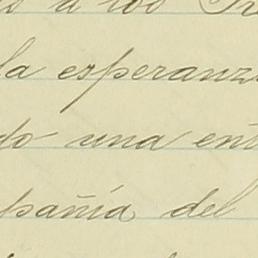 s a los Tr
la esperanza
do una ent
pañía del